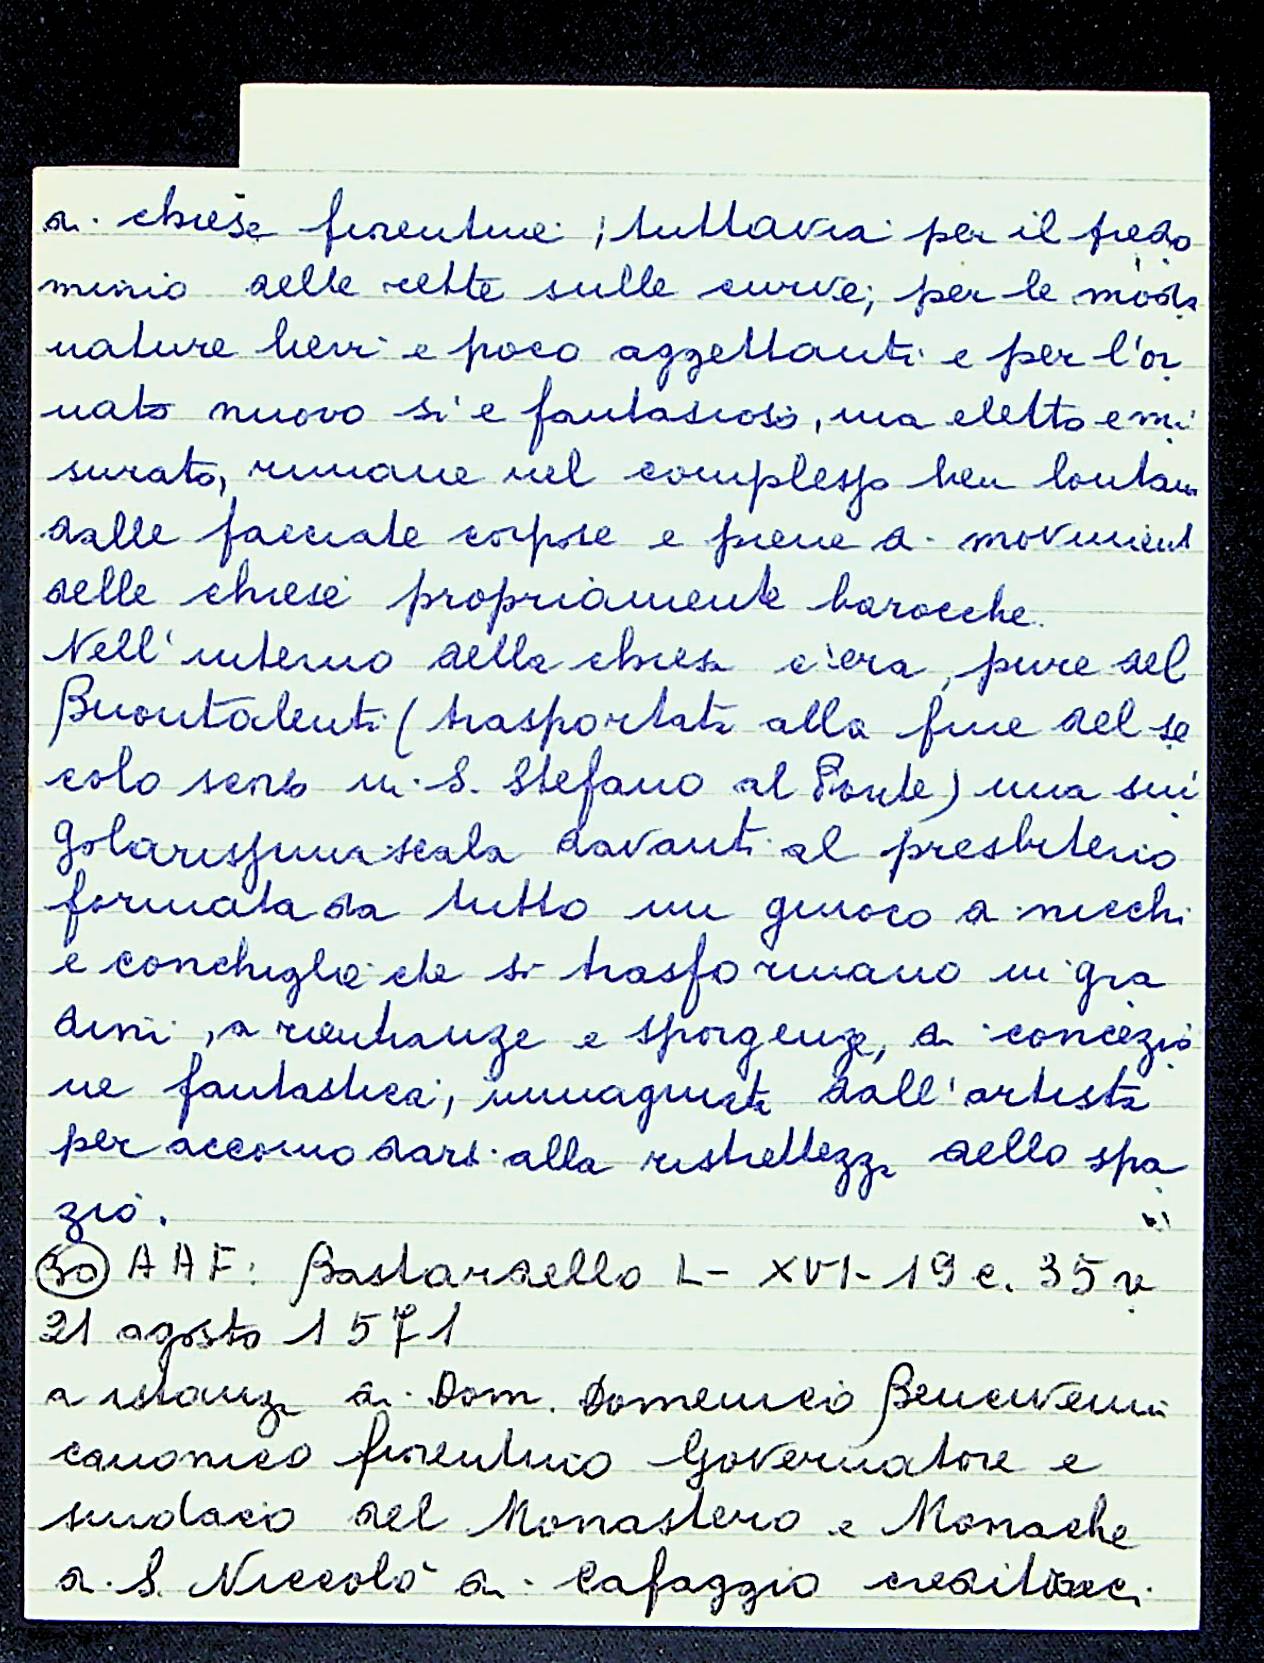 di chiese fiorentine; tuttavia per il predo
minio delle rette sulle curve, per le moda
nature lievi e poco aggettanti e per l'or
nato nuovo sì e fantasioso, ma eletto e mi
surato, rimane nel complesso ben lontano
dalle facciate corpose e piene di movimenti
delle chiese propriamente barocche.
Nell'interno della chiesa c'era, pure del
Buontalenti (trasportata alla fine del se
colo scorso in S. Stefano al Ponte) una sin
golarissima scala davanti al presbiterio
formata da tutto un giuoco di nicchi
e conchiglie che si trasformano in gra
dini, a rientranze e sporgenze, di concezio
ne fantastica, immaginata dall'artista
per accomodarsi alla ristrettezza dello spa
zio.
(30) AAF: Bastardello L- XVI-19 c. 35 v
21 agosto 1571
a istanza di Dom. Domenico Benivieni
canonico fiorentino Governatore e
sindaco del Monastero e Monache
di S. Niccolò di Cafaggio